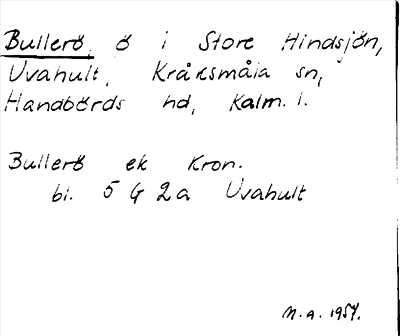 Bullerö, ö i Store Hindsjön,
Uvahult, Kråksmåla sn,
Handbörds hd, Kalm. l.
Bullerö ek Kron.
bl. 5 G 2a Uvahult
M.A. 1954.